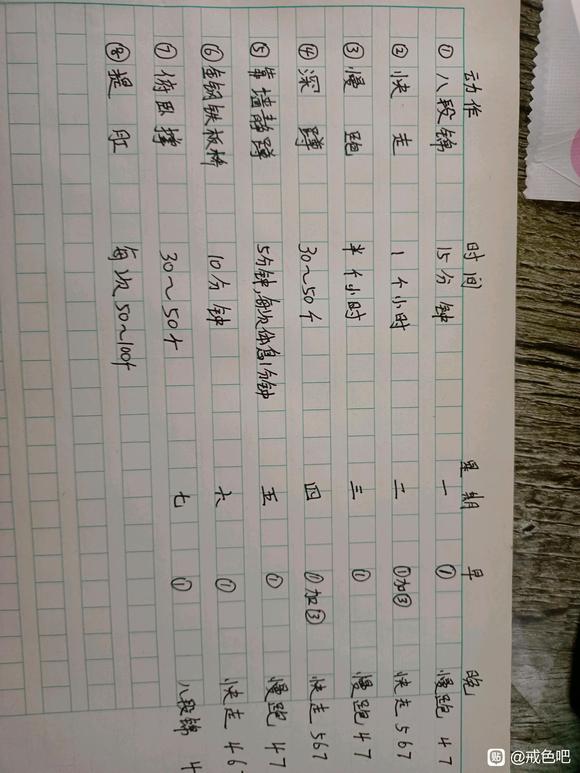 动作 时间 星期 早 晚
① 八段锦 15分钟 一 ① 慢跑 47
② 快走 1个小时 二 ①加③ 快走 567
③ 慢跑 半个小时 三 ① 慢跑 47
④ 深蹲 30~50个 四 ①加③ 快走 567
⑤ 靠墙静蹲 5分钟,每次休息1分钟 五 ① 慢跑 47
⑥ 金钢铁板桥 10分钟 六 ① 快走 46
⑦ 俯卧撑 30~50个 七 ① 八段锦 4
⑧ 提肛 每次50~100个
贴 @戒色吧